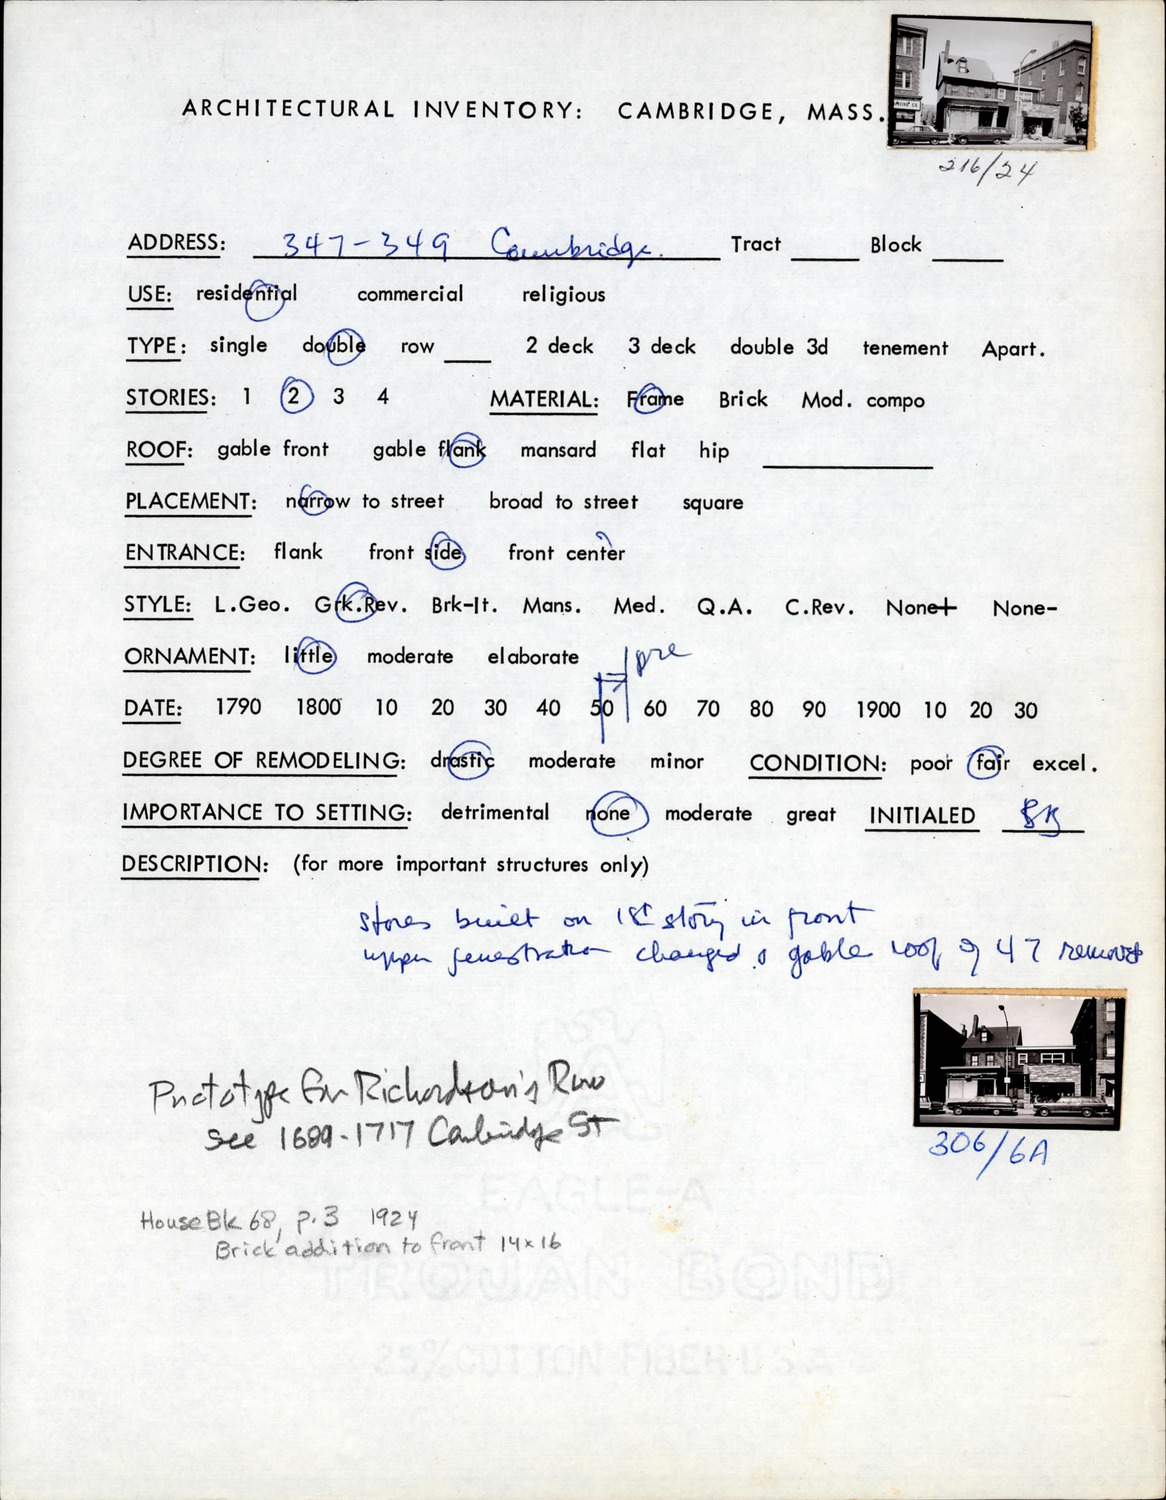 ARCHITECTURAL INVENTORY: CAMBRIDGE, MASS.
216/24
ADDRESS: 347-349 Cambridge. Tract ____ Block ____
USE: residential commercial religious
TYPE: single double row ____ 2 deck 3 deck double 3d tenement Apart.
STORIES: 1 2 3 4 MATERIAL: Frame Brick Mod. compo
ROOF: gable front gable flank mansard flat hip ____
PLACEMENT: narrow to street broad to street square
ENTRANCE: flank front side front center
STYLE: L.Geo. Grk.Rev. Brk-It. Mans. Med. Q.A. C.Rev. None+ None-
ORNAMENT: little moderate elaborate pre
DATE: 1790 1800 10 20 30 40 50 60 70 80 90 1900 10 20 30
DEGREE OF REMODELING: drastic moderate minor CONDITION: poor fair excel.
IMPORTANCE TO SETTING: detrimental none moderate great INITIALED
DESCRIPTION: (for more important structures only)
stores built on 1st story in front
upper fenestration changed & gable roof of 47 removed
Prototype for Richardson's Row
See 1689-1717 Cambridge St
306/6A
House Bk 68, p.3 1924
Brick addition to front 14x16
EAGLE-A
TROJAN BOND
25% COTTON FIBER U.S.A